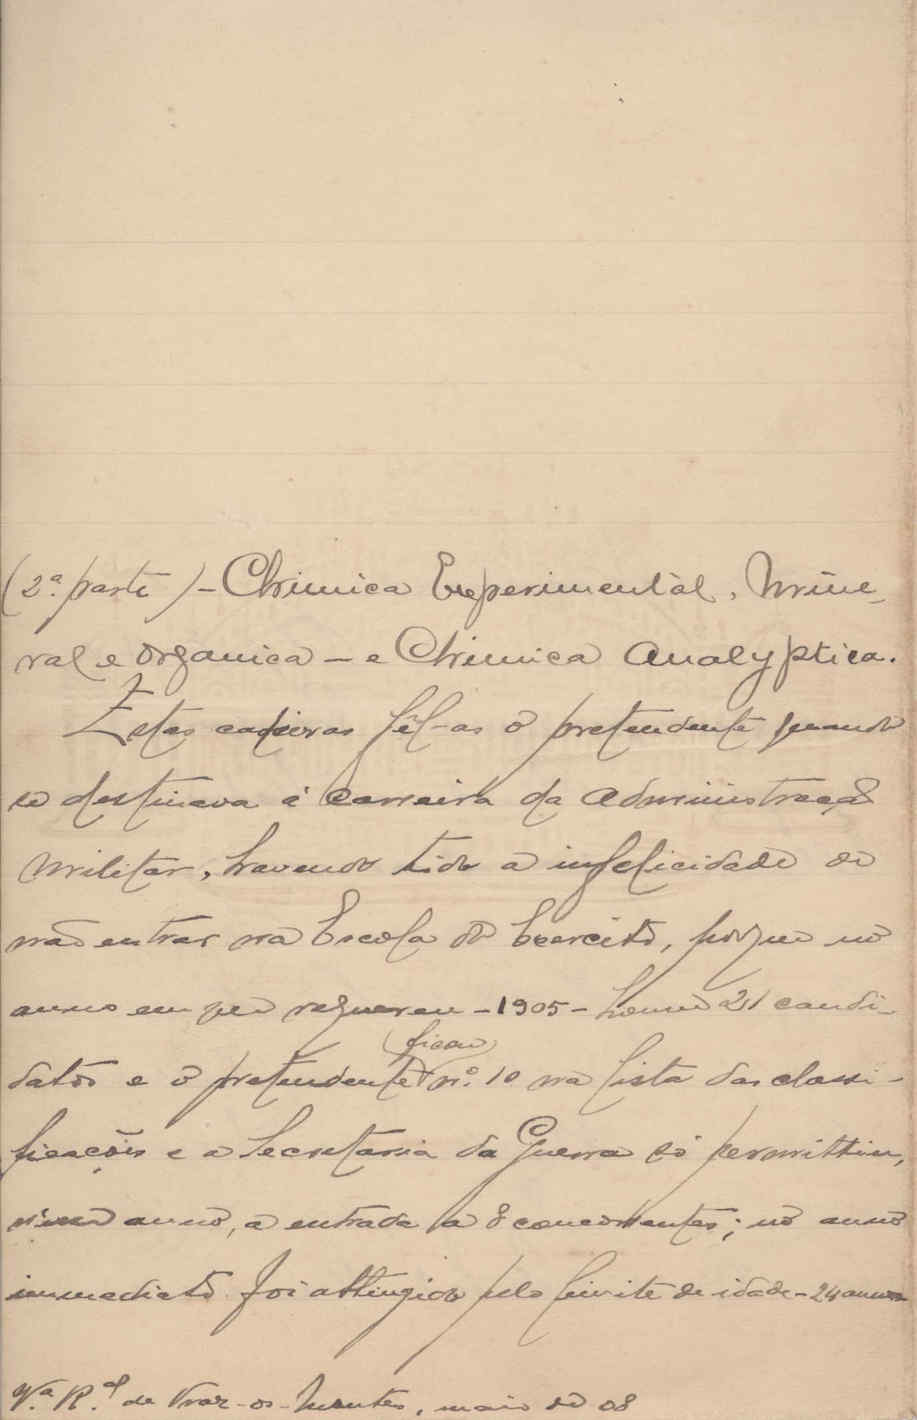 (2.ª parte) - Chimica Experimental, Mine-
ral e organica - e Chimica Analyptica.
Estas cadeiras fêl-as o pretendente quando
se destinava á carreira da Administração
Militar, havendo tido a infelicidade de
não entrar na Escola do Exercito, porque no
anno em que requereu - 1905 - houve 21 candi-
datos e o pretendente (ficou) n.º 10 na lista das classi-
ficações e a Secretaria da Guerra só permittiu,
n'esse anno, a entrada a 8 concorrentes; no anno
immediato foi attingido pelo limite de idade - 24 annos
V.ª R.al de Traz-os-Montes, maio de 08